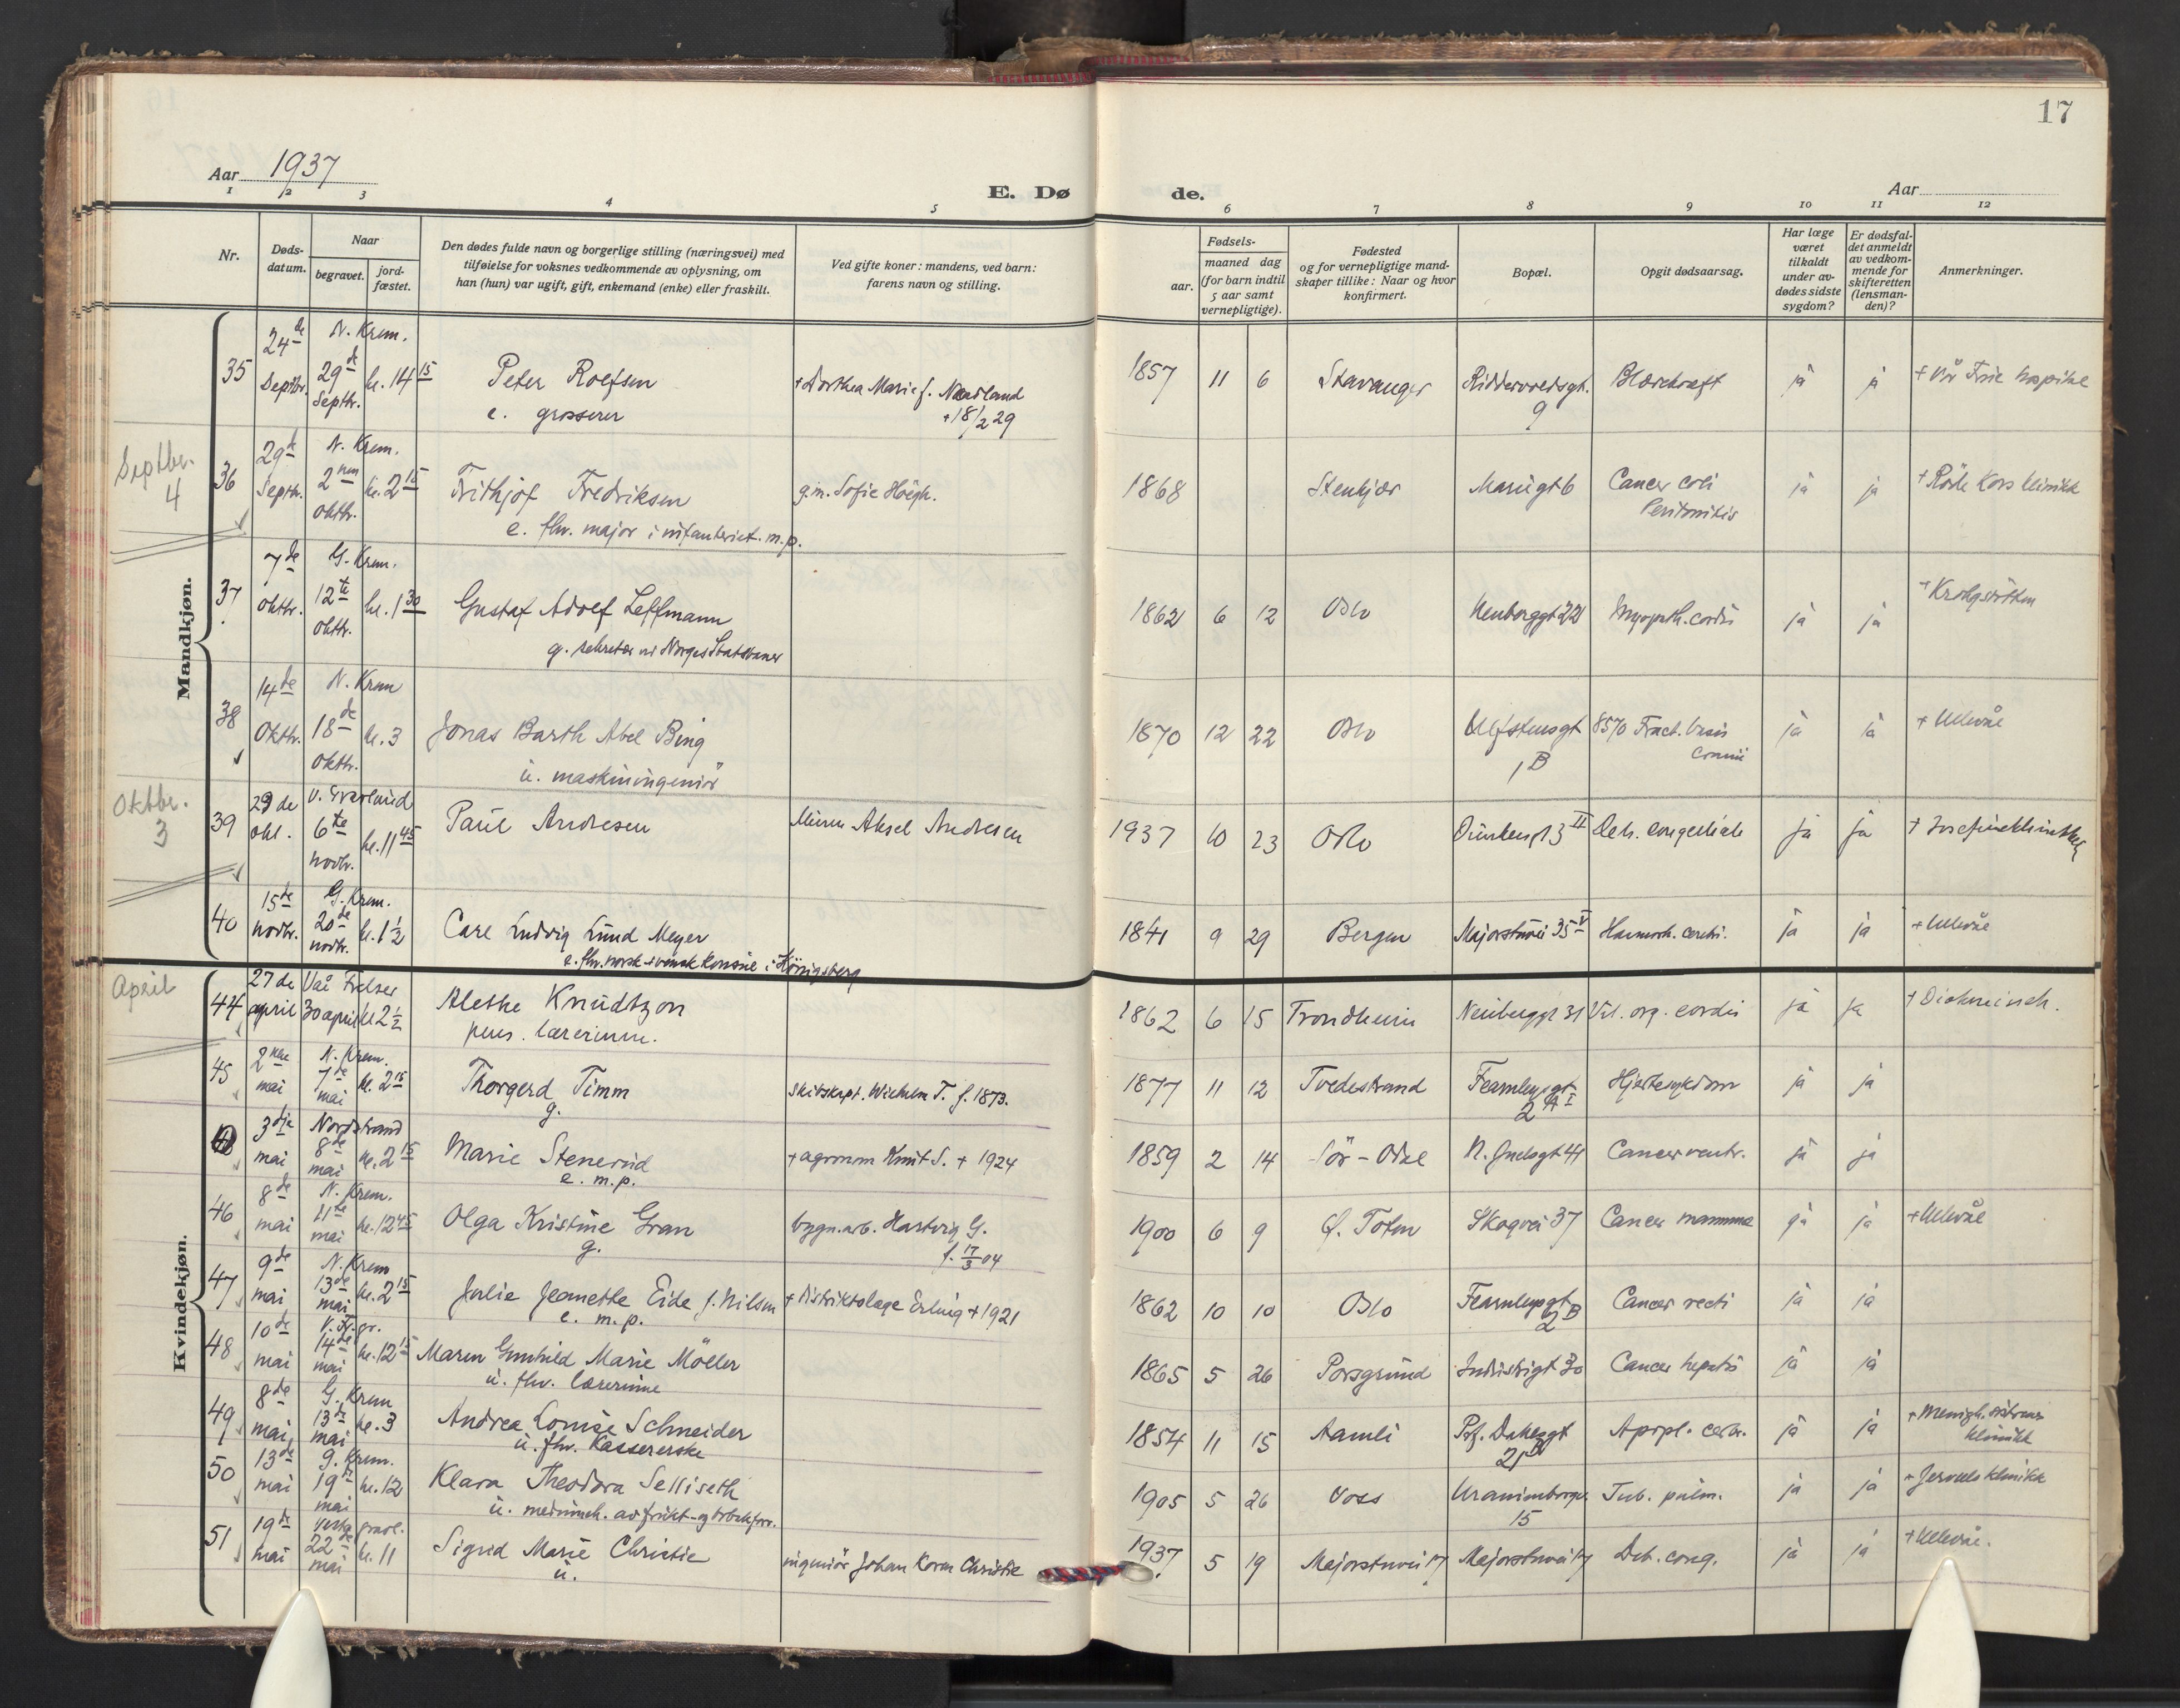 17
Aar 1937
E. Dø
de.
Aar
1 2 3 4 5 6 7 8 9 10 11 12
Nr.
Døds-
datum.
Naar
begravet.
jord-
fæstet.
Den dødes fulde navn og borgerlige stilling (næringsvei) med
tilføielse for voksnes vedkommende av oplysning, om
han (hun) var ugift, gift, enkemand (enke) eller fraskilt.
Ved gifte koner: mandens, ved barn:
farens navn og stilling.
Fødsels-
aar.
maaned dag
(for barn indtil
5 aar samt
vernepligtige).
Fødested
og for vernepligtige mand-
skaper tillike: Naar og hvor
konfirmert.
Bopæl.
Opgit dødsaarsag.
Har læge
været
tilkaldt
under av-
dødes sidste
sygdom?
Er dødsfal-
det anmeldt
av vedkom-
mende for
skifteretten
(lensman-
den)?
Anmerkninger.
Mandkjøn.
35
24de
Septbr.
N. Krem.
29de
Septbr.
kl. 14 15
Peter Roefsen
e. grosserer
+ Dorthea Marie f. Naadland
+ 18/2 29
1857 11 6 Stavanger
9
Blærekræft
ja ja
+ Vår Frue hospital
Septbr.
4
36
29de
Septbr.
N. Krem.
2nen
oktbr.
kl. 2 15
Frithjof Fredriksen
e. fhv. major i infanteriet. m.p.
g.m. Sofie Høegh.
1868 Stenkjær
Mariigt 6
Cancer coli
Peritonitis
ja ja
+ Røde Kors klinikk
37
7de
oktbr.
G. Krem.
12te
oktbr.
kl. 1 30
Gustaf Adolf Leffmann
g. sekretær ved Norges Statsbaner
1862 6 12 Oslo
Neuberggt 22
Myopath. cordis
ja ja
+ Krohgstøtten
38
14de
Oktbr.
N. Krem
18de
oktbr.
kl. 3
Jonas Barth Abel Bing
u. maskiningeniør
1870 12 22 Oslo
Ulfstensgt
1 B
Fract. basis
cranii
ja ja
+ Ullevål
Oktbr.
3
39
29 de
okt.
V. Gravlund
6te
novbr.
kl. 11 45
Paul Andresen
Murer Aksel Andresen
1937 10 23 Oslo
Deb. congenitalis
ja ja
+ Josefineklinikken
40
15de
novbr.
G. Krem.
20de
novbr.
kl. 1 1/2
Carl Ludvig Lund Meyer
e. fhv. norsk-svensk konsul i Königsberg
1841 9 29 Bergen
Majorstuvei 35 V
Haemorh. cerebri.
ja ja
+ Ullevål
Kvindekjøn.
April
44
27 de
april
Vår Frelser
30 april
kl 2 1/2
Alethe Knudtzon
pens. lærerinne.
1862 6 15 Trondheim
Neuberggt 31
Vit. org. cordis
ja ja
+ Diakonissh.
45
2nen
mai
N. Krem.
7de
mai
kl. 2 15
Thorgerd Timm
g.
Skibskapt. Wilhelm T. f. 1873.
1877 11 12 Tvedestrand
Fearnleysgt
2 A I
Hjertesykdom
ja ja
3dje
mai
Nordstrand
8de
mai
kl. 2 15
Marie Stenerud
e. m.p.
+ agronom Knut S. + 1924
1859 2 14 Sør-Odal
N. Juelsgt 41
Cancer ventr.
ja ja
46
8de
mai
N. Krem.
11te
mai
kl. 12 45
Olga Kristine Gran
g.
bygn.arb. Hartvig G.
f. 17/3 04
1900 6 9 Ø. Toten
Skogvei 37
Cancer mammae
ja ja
+ Ullevål
47
9de
mai
N. Krem
13de
mai
kl. 2 15
Julie Jeanette Eide f. Nilsen
e. m.p.
+ distriktslæge Erling + 1921
1862 10 10 Oslo
Fearnleysgt
2 B
Cancer recti
ja ja
48
10de
mai
V. gr.
14de
mai
kl. 12 15
Maren Gunhild Marie Möller
u. fhv. lærerinne
1865 5 26 Porsgrund
Industrigt 30
Cancer hepatis
ja ja
49
8de
mai
G. Krem
13de
mai
kl. 3
Andrea Louise Schneider
u. fhv. Kassererske
1854 11 15 Aamli
Prf. Dahlsgt
21B
Apopl. cerebr.
ja ja
+ Menigh.søstrenes
klinikk
50
13de
mai
G. Krem.
19de
mai
kl. 12
Klara Theodora Selliseth
u.
1905 5 26 Voss
Uranienborgv.
15
Tub. pulm.
ja ja
+ Jervells klinikk
51
19de
mai
Vestre gravl.
22de
mai
kl. 11
Sigrid Marie Christie
u.
ingeniør Johan Koren Christie
1937 5 19 Majorstuvei 17
Majorstuvei 17
Deb. cong.
ja ja
+ Ullevål.